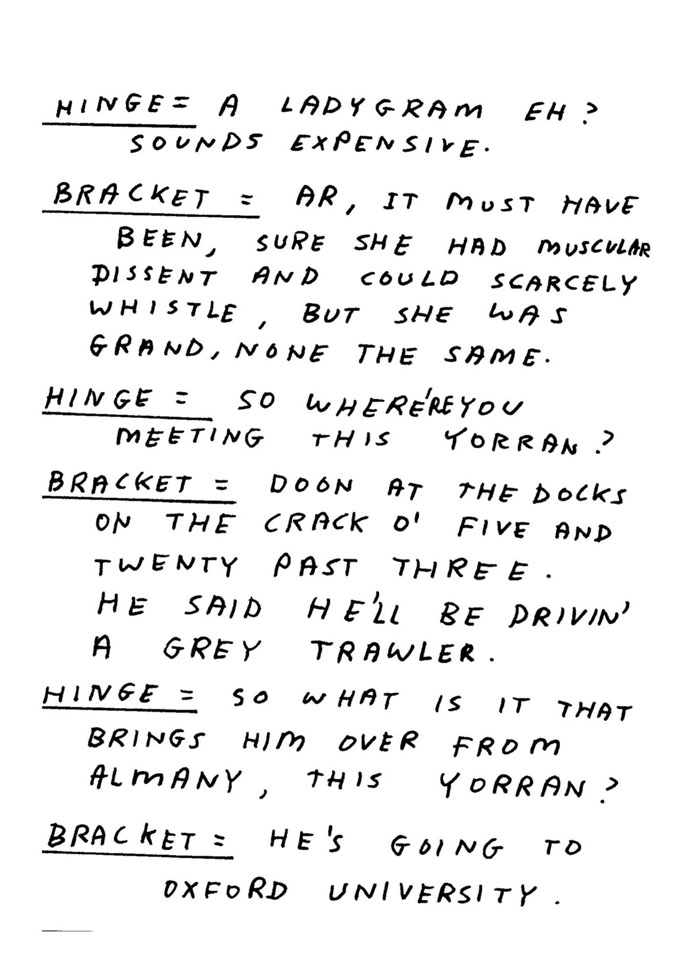 HINGE = A LADYGRAM EH?
SOUNDS EXPENSIVE.
BRACKET = AR, IT MUST HAVE
BEEN, SURE SHE HAD MUSCULAR
DISSENT AND COULD SCARCELY
WHISTLE, BUT SHE WAS
GRAND, NONE THE SAME.
HINGE = SO WHERE'REYOU
MEETING THIS YORRAN?
BRACKET = DOON AT THE DOCKS
ON THE CRACK O' FIVE AND
TWENTY PAST THREE.
HE SAID HE'LL BE DRIVIN'
A GREY TRAWLER.
HINGE = SO WHAT IS IT THAT
BRINGS HIM OVER FROM
ALMANY, THIS YORRAN?
BRACKET = HE'S GOING TO
OXFORD UNIVERSITY.